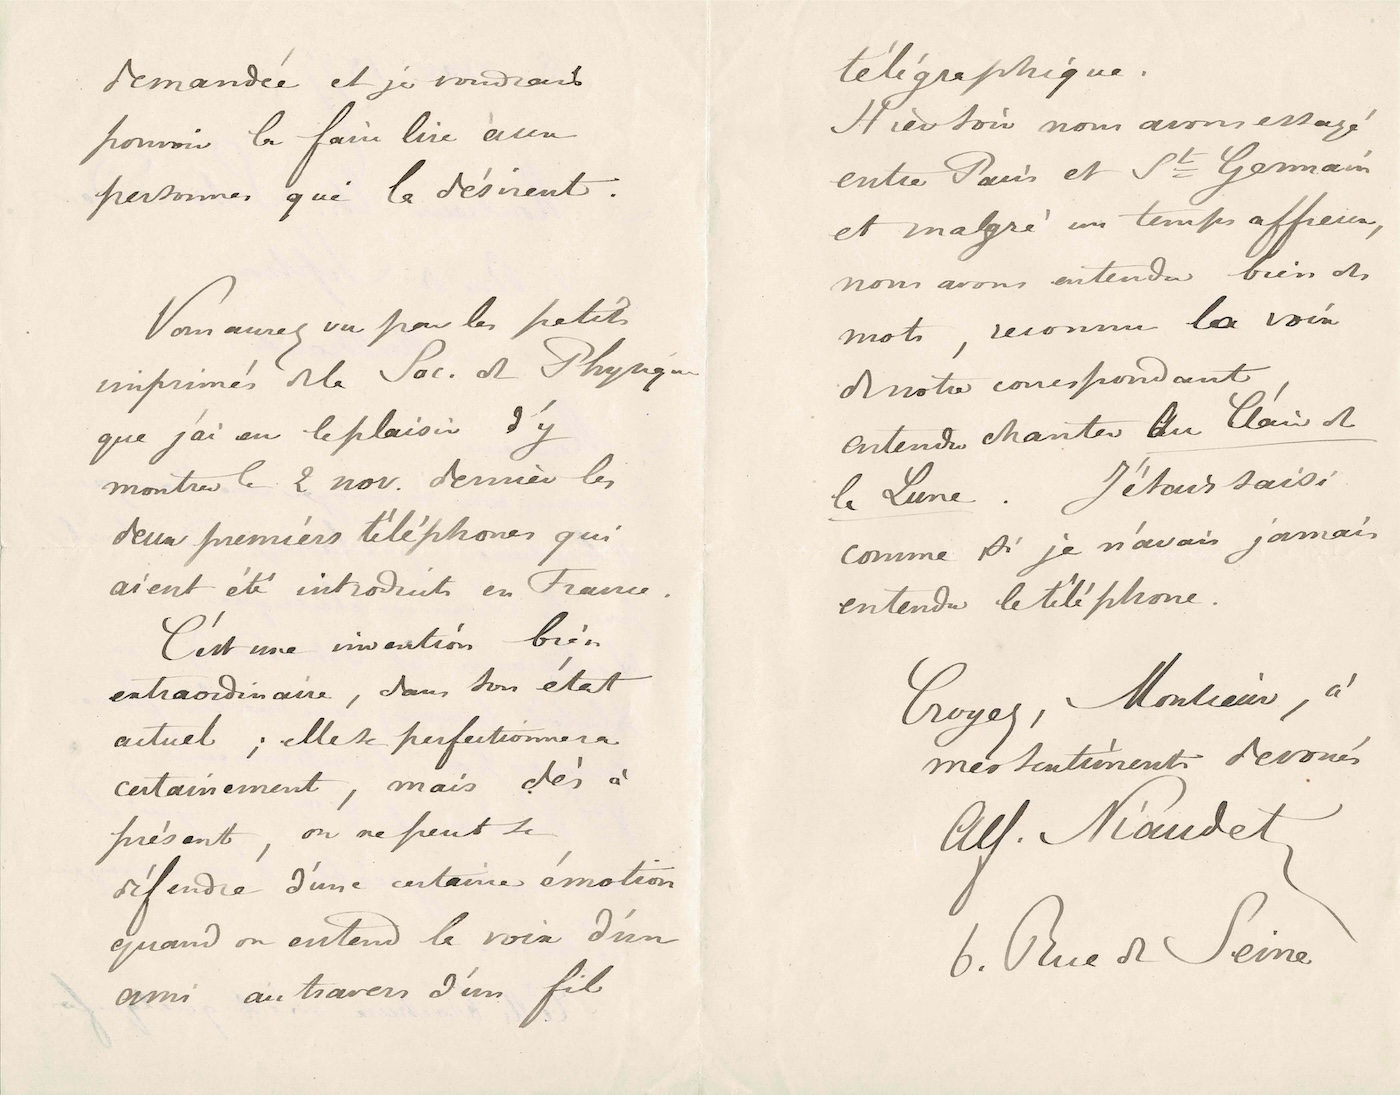 demandée et je voudrais
pouvoir la faire lire aux
personnes qui la désirent.
Vous aurez vu par les petits
imprimés de la Soc. de Physique
que j'ai eu le plaisir d'y
montrer le 2 nov. dernier les
deux premiers téléphones qui
aient été introduits en France.
C'est une invention bien
extraordinaire, dans son état
actuel ; elle se perfectionnera
certainement, mais dès à
présent, on ne peut se
défendre d'une certaine émotion
quand on entend la voix d'un
ami au travers d'un fil
télégraphique.
Hier soir nous avons essayé
entre Paris et St Germain
et malgré un temps affreux,
nous avons entendu bien des
mots, reconnu la voix
de notre correspondant,
entendu chanter Au Clair de
la Lune. J'étais saisi
comme si je n'avais jamais
entendu le téléphone.
Croyez, Monsieur, à
mes sentiments dévoués
Alf. Niaudet
6. Rue de Seine